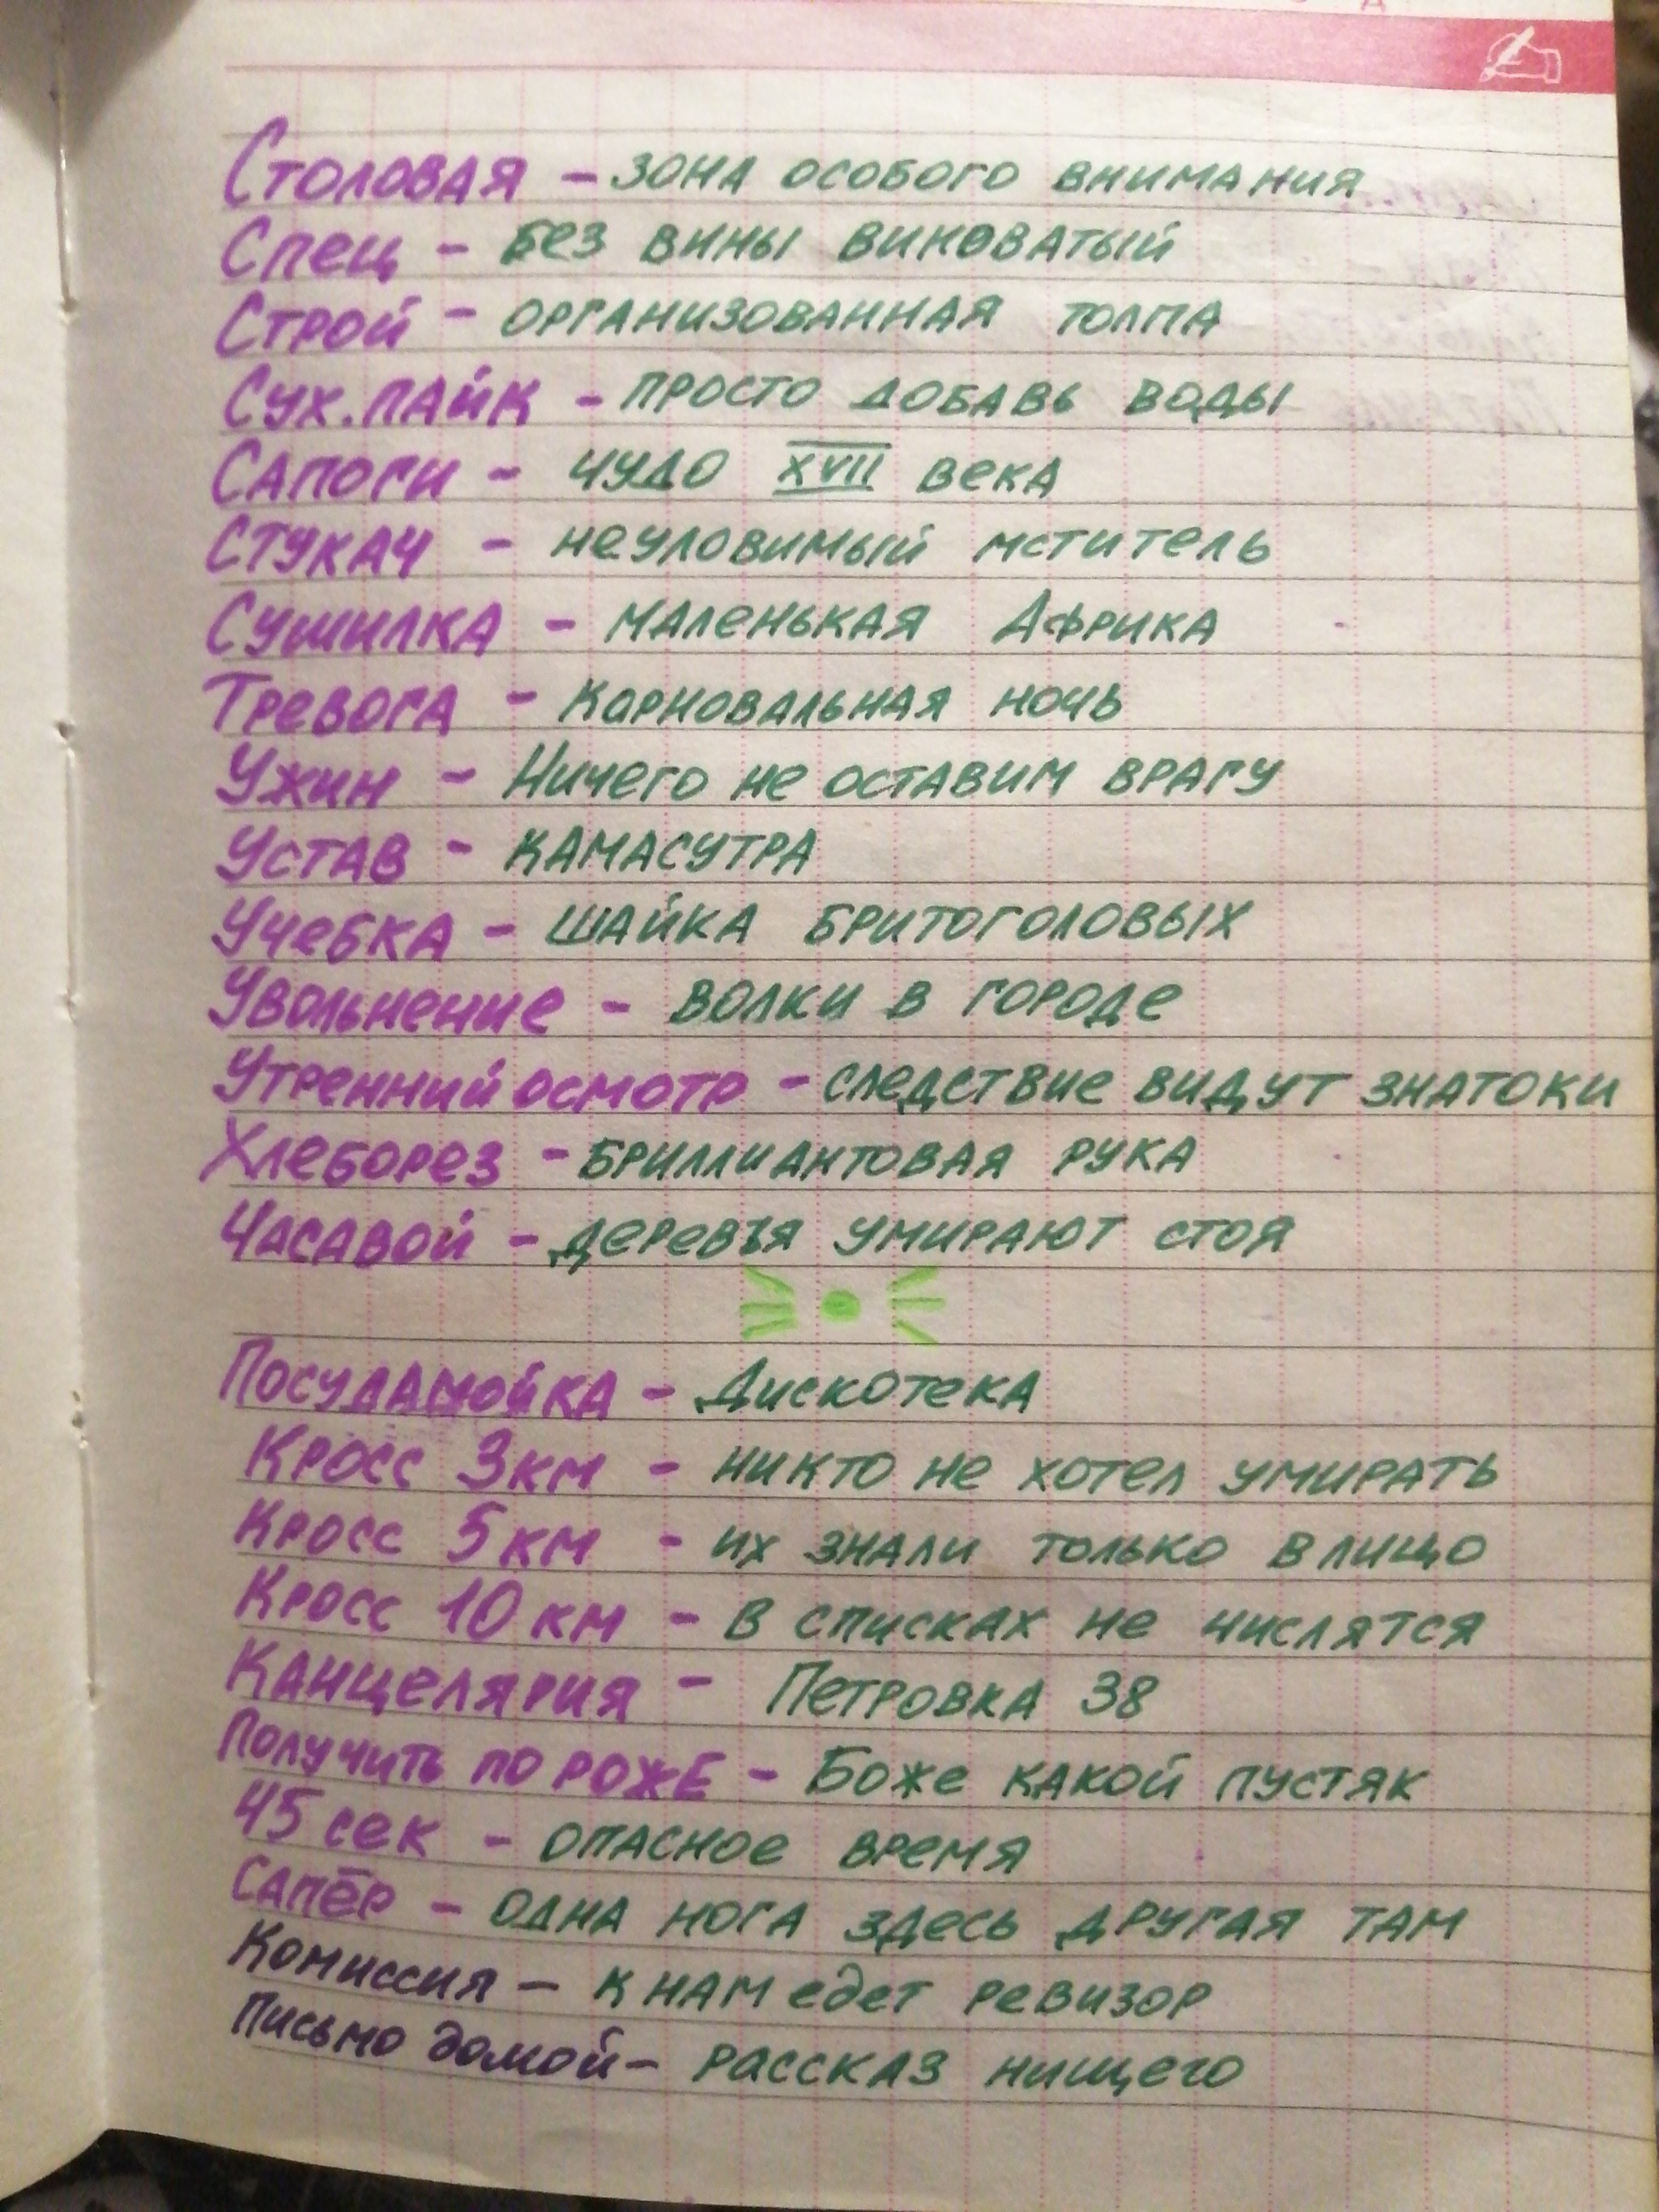 Столовая - зона особого внимания
Спец - без вины виноватый
Строй - организованная толпа
Сух. пайк - просто добавь воды
Сапоги - чудо XVII века
Стукач - неуловимый мститель
Сушилка - маленькая Африка
Тревога - карновальная ночь
Ужин - Ничего не оставим врагу
Устав - камасутра
Учебка - шайка бритоголовых
Увольнение - волки в городе
Утренний осмотр - следствие видут знатоки
Хлеборез - бриллиантовая рука
Часавой - деревья умирают стоя
Посудамойка - Дискотека
Кросс 3км - никто не хотел умирать
Кросс 5км - их знали только в лицо
Кросс 10 км - в списках не числятся
Канцелярия - Петровка 38
Получить по роже - Боже какой пустяк
45 сек - опасное время
Сапёр - одна нога здесь другая там
Комиссия - к нам едет ревизор
Письмо домой - рассказ нищего